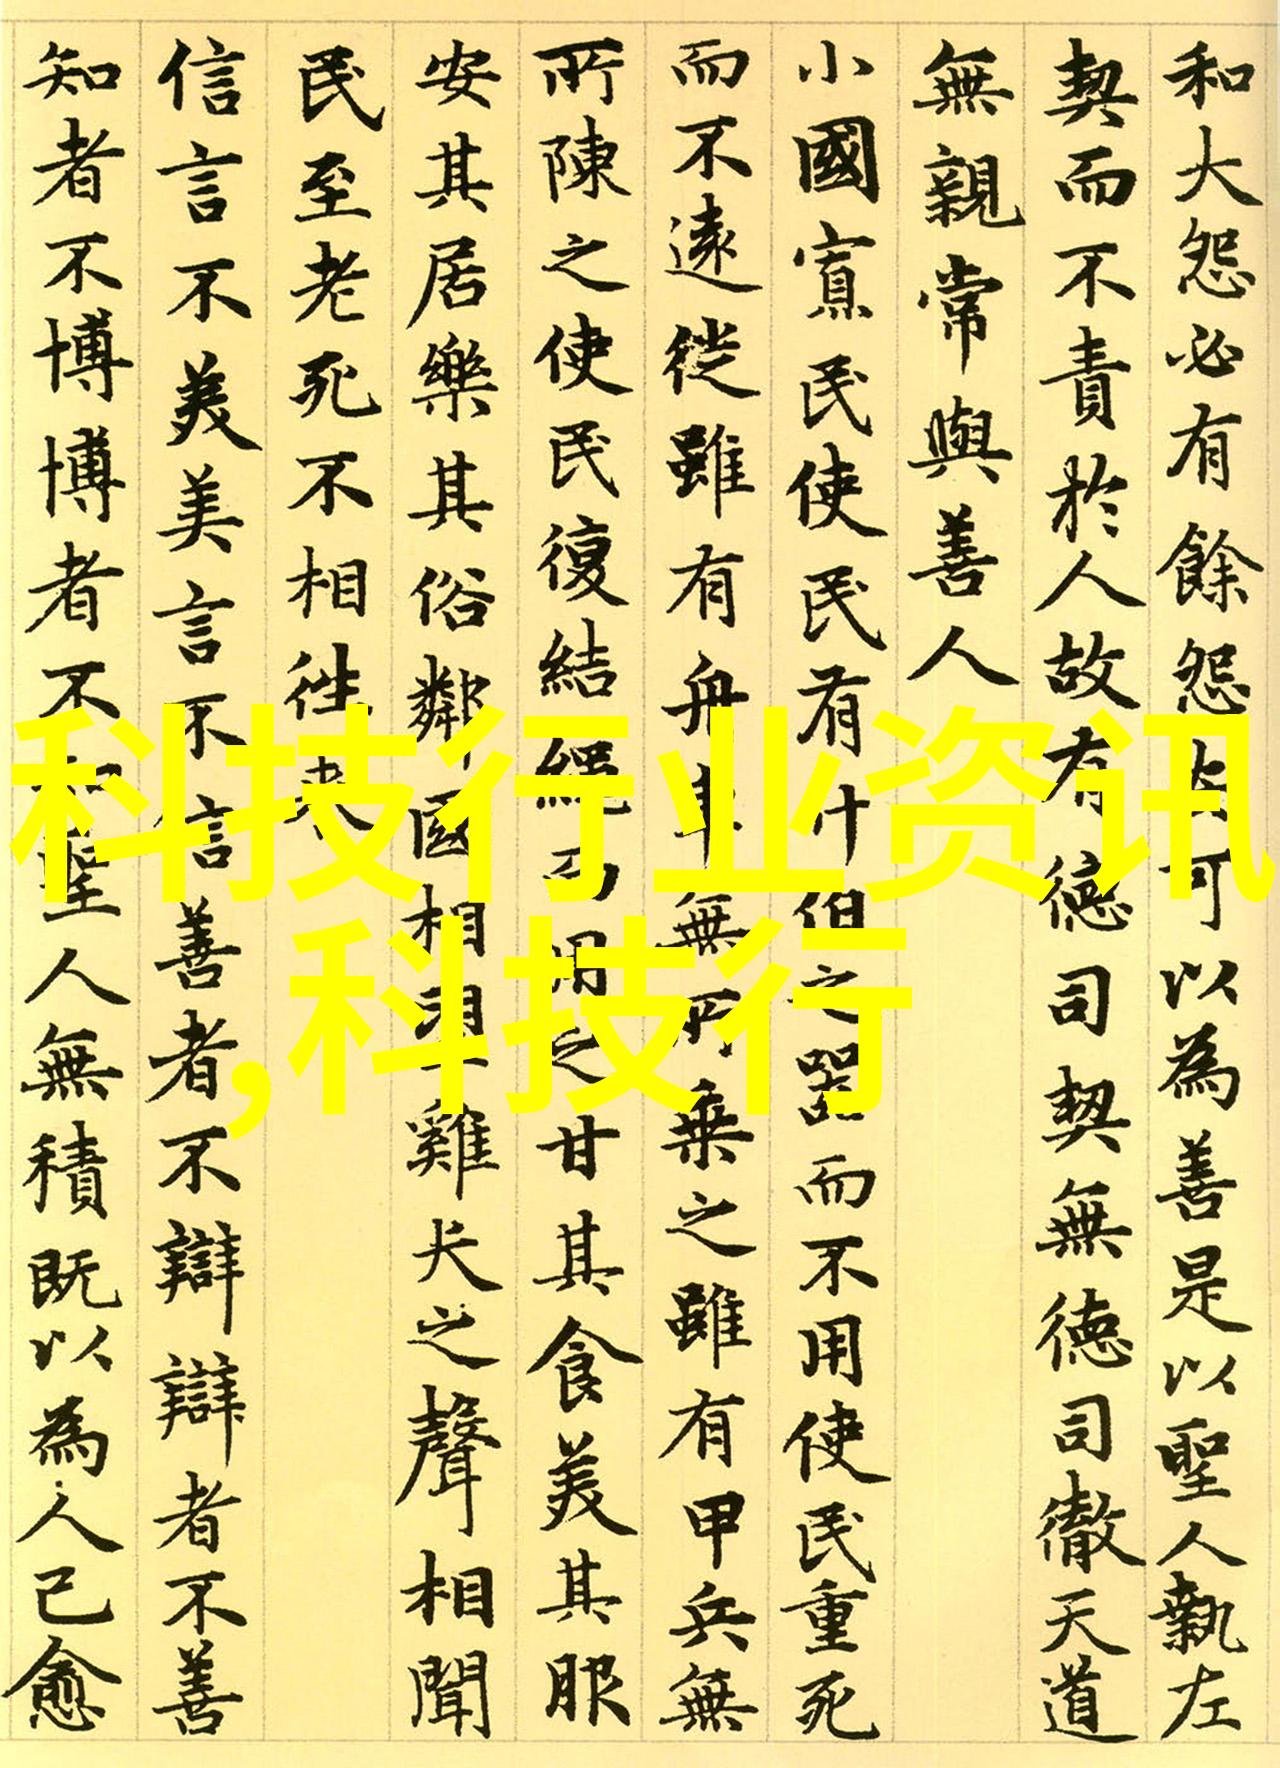 和大怨必有餘怨安可以為善是以聖人執左
契而不責於人故有德司契無德司徹天道
無親常與善人
小國寡民使民有什伯之器而不用使民重死
而不遠徙雖有舟車無所乘之雖有甲兵無
所陳之使民復結繩而用之甘其食美其服
安其居樂其俗鄰國相望雞犬之聲相聞
民至老死不相往來
信言不美美言不信善者不辯辯者不善
知者不博博者不知聖人無積既以為人己愈
科技行业资讯
,科技行